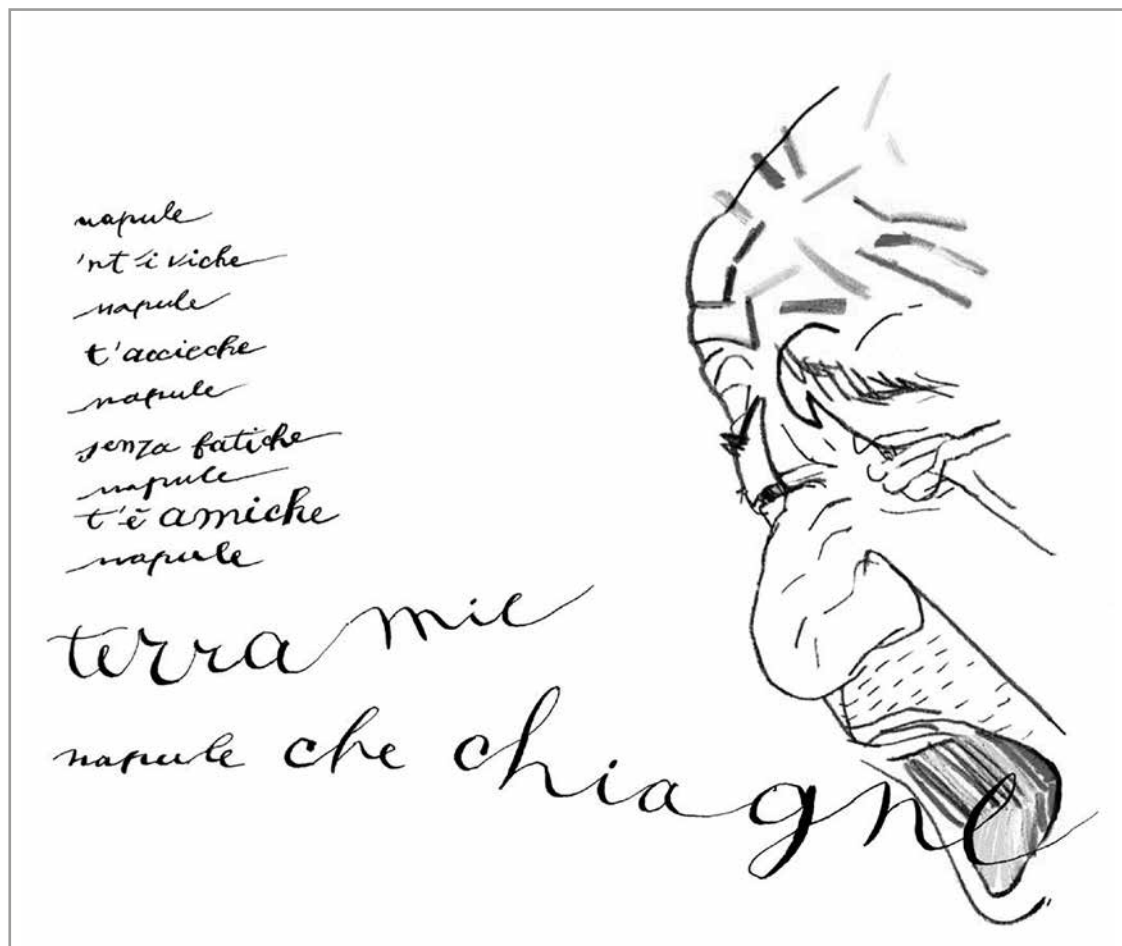 napule
'nt'i viche
napule
t'accieche
napule
senza fatiche
napule
t'è amiche
napule
terra mie
napule che chiagne